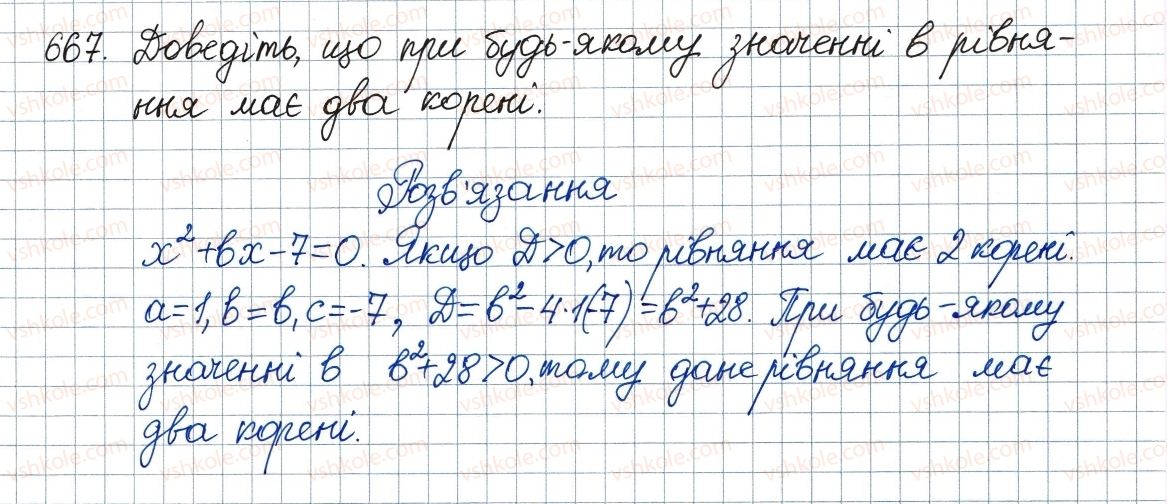 667. Доведіть, що при будь-якому значенні в рівня-
ння має два корені.
Розв'язання
x²+вx-7=0. Якщо D>0, то рівняння має 2 корені.
a=1, в=в, c=-7, D=в²-4·1(-7)=в²+28. При будь-якому
значенні в в²+28>0, тому дане рівняння має
два корені.